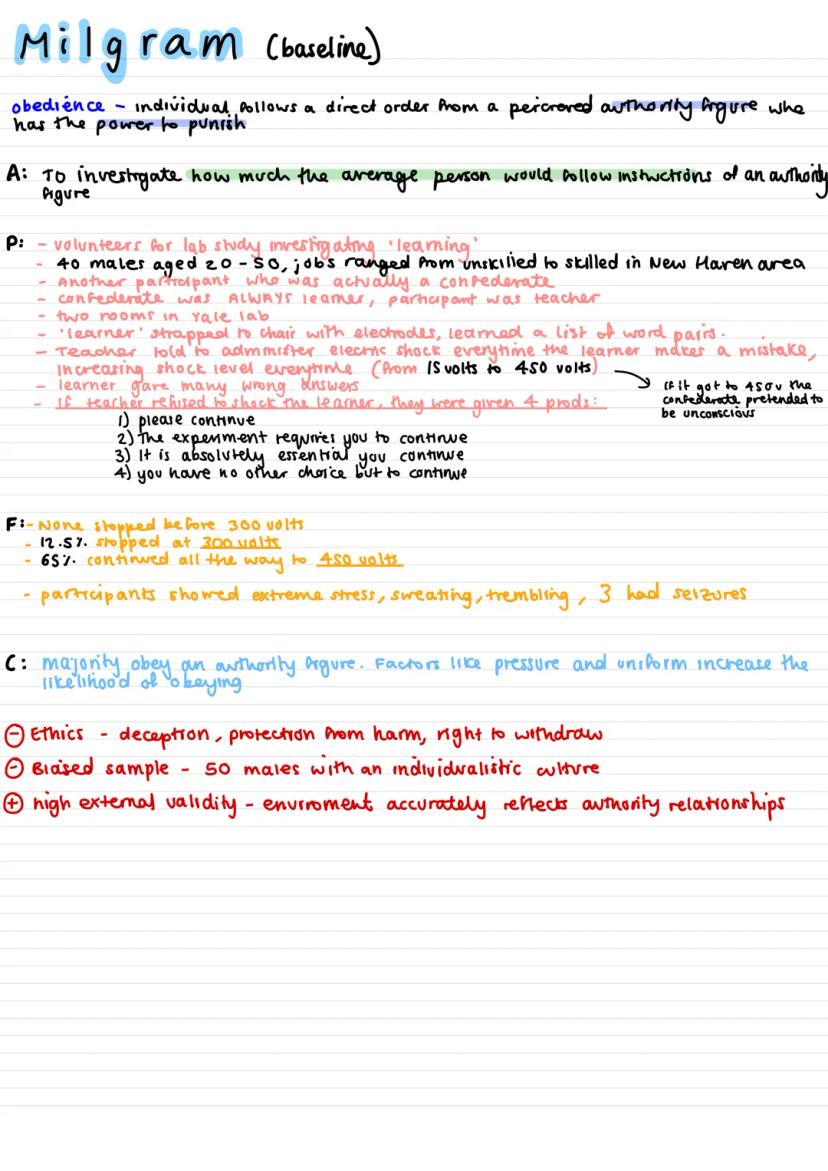 Milgram (baseline)
obedience - individual follows a direct order from a percieved authority figure who
has the power to punish
A: To investigate how much the average person would follow instructions of an authority
figure
P: - volunteers for lab study investigating 'learning'
- 40 males aged 20-50, jobs ranged from unskilled to skilled in New Haven area
- Another participant who was actually a confederate
- confederate was ALWAYS learner, participant was teacher
- two rooms in Yale lab
- 'learner' strapped to chair with electrodes, learned a list of word pairs.
- Teacher told to administer electric shock everytime the learner makes a mistake,
increasing shock level everytime (from 15 volts to 450 volts)
if it got to 450v the
confederate pretended to
be unconscious
- learner gave many wrong answers
- if teacher refused to shock the learner, they were given 4 prods:
1) please continue
2) The experiment requires you to continue
3) It is absolutely essential you continue
4) you have no other choice but to continue
F: - None stopped before 300 volts
- 12.5% stopped at 300 volts
- 65% continued all the way to 450 volts
- participants showed extreme stress, sweating, trembling, 3 had seizures
C: majority obey an authority figure. Factors like pressure and uniform increase the
likelihood of obeying
⊖ Ethics - deception, protection from harm, right to withdraw
⊖ Biased sample - 50 males with an individualistic culture
⊕ high external validity - enviroment accurately reflects authority relationships